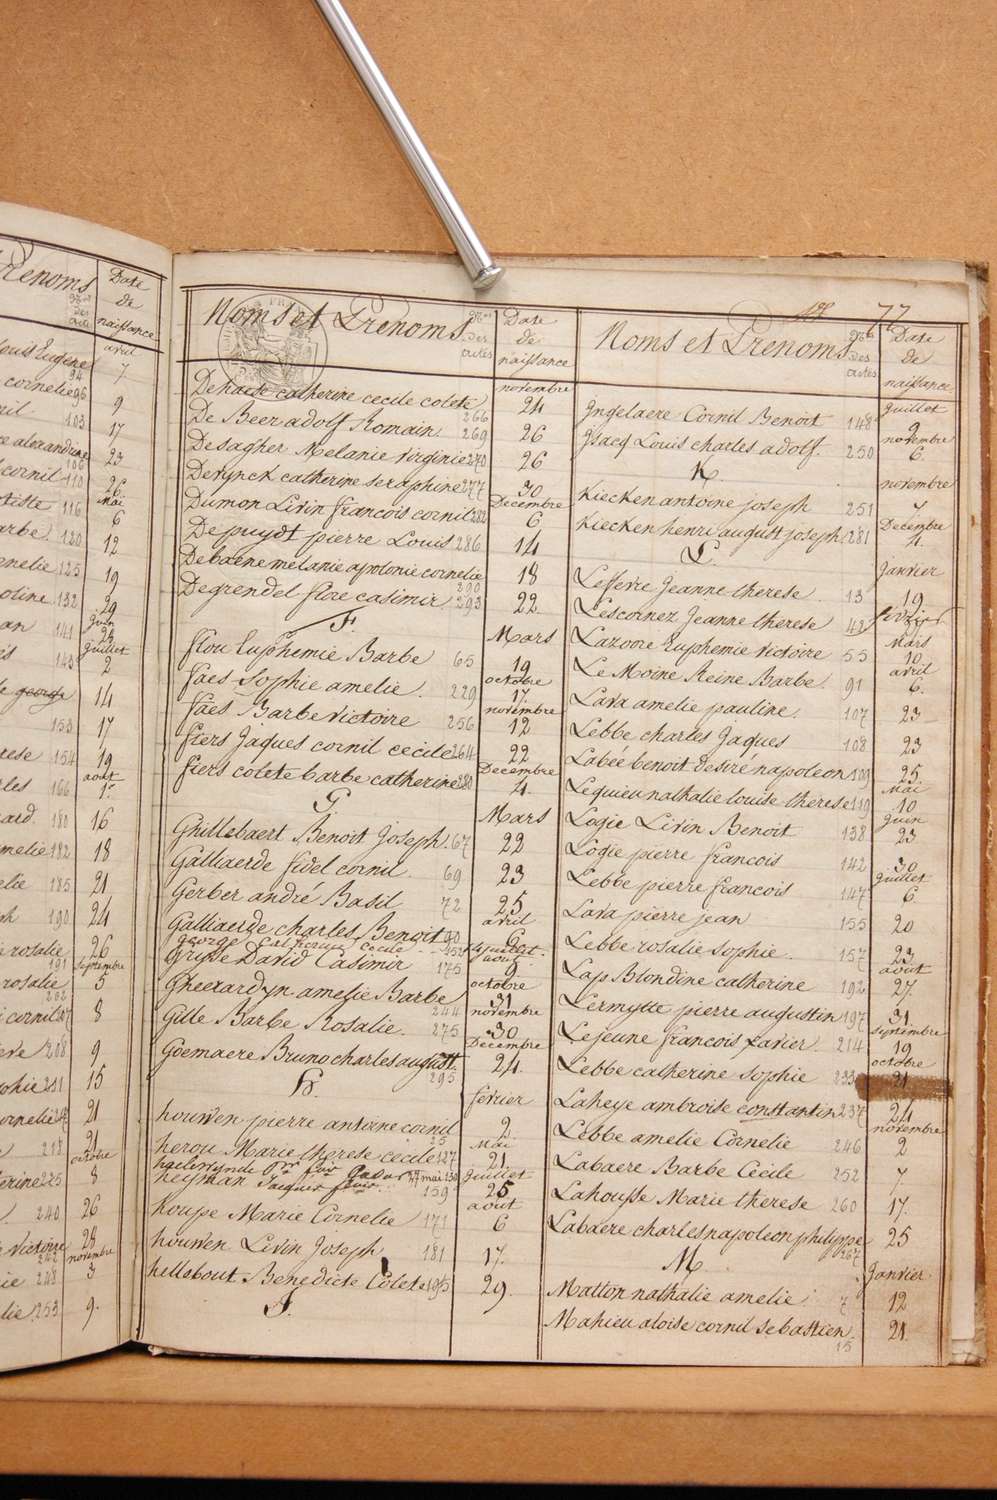 Prenoms
Date
de
naissance
avril
Louis Eugene 94 7
cornelie 96 9
103 17
alexandrine 106 23
cornil 110 26
mai
116 6
Barbe 120 12
125 19
132 29
juin
141 24
juillet
2
george 14
153 17
154 19
aout
166 1
180 16
182 18
185 21
190 24
rosalie 191 26
septembre
rosalie 202 5
cornil 207 8
208 9
sophie 211 15
cornelie 21
218 21
octobre
225 8
240 26
Victoire 242 28
novembre
248 3
253 9.
Noms et Prenoms
Nos des actes
Date de naissance
novembre
Dehaele catherine cecile colete 266 24
De Beer adolf Romain. 269 26
Desagher Melanie virginie 270 26
Derynck catherine seraphine 277 30
Decembre
Dumon Livin francois cornil 282 6
Depuydt pierre Louis 286 14
Debaene melanie apolonie cornelie 290 18
Degrendel flore casimir 293 22
F.
Mars
flou Euphemie Barbe 65 19
octobre
faes Sophie amelie. 229 17.
novembre
faes Barbe victoire 256 12
fiers Jaques cornil cecile 264 22
Decembre
fiers colete barbe catherine 280 4.
G.
Mars
Ghillebaert Benoit Joseph. 67 22
Galliaerde fidel cornil. 69 23
Gerber andré Basil 72 25
avril
Galliaerde charles Benoit 90 6
george Cecile 152 juillet
aout
Grype David Casimir 175 9
octobre
Gheerardyn amelie Barbe 244 31
novembre
Gille Barbe Rosalie. 275 30
Decembre
Goemaere Bruno charles august. 295 24.
H.
fevrier
houwen pierre antoine cornil 25 2
mai
herou Marie therese cecile 127 21
27 mai 130
juillet
heyman Jacques 159 25
aout
houpe Marie Cornelie 171 6
houwen Livin Joseph 181 17.
hellebout Benedicte Colete 195 29.
J.
77
Noms et Prenoms
Nos des actes
Date de naissance
juillet
Yngelaere Cornil Benoit 148 9
novembre
Ysacq Louis charles adolf. 250 6
K.
novembre
Kiecken antoine joseph 251 7
Decembre
Kiecken henri august joseph 281 4.
L.
Janvier
Lefevre Jeanne therese 13 19
Lescornez Jeanne therese 42
Mars
Lazoore Euphemie victoire 55 10
avril
Le Moine Reine Barbe. 91 6.
Lava amelie pauline. 107 23
Lebbe charles Jaques 108 23
Labée benoit desiré napoleon 109 25
mai
Lequieu nathalie louise therese 119 10
juin
Logie Livin Benoit 138 23
Logie pierre francois 142 30
juillet
Lebbe pierre francois 147 6
Lava pierre jean 155 20
Lebbe rosalie sophie. 157 23
aout
Lap Blondine catherine 192 27.
Lermytte pierre augustin 197 31
septembre
Lejeune francois xavier. 214 19
octobre
Lebbe catherine sophie 233 21
Laheye ambroise constantin 237 24
novembre
Lebbe amelie Cornelie 246 2
Labaere Barbe Cecile 252 7
Lahousse Marie therese 260 17.
Labaere charles napoleon philippe 267 25
M
Janvier
Matton nathalie amelie. 7 12
Mahieu aloise cornil sebastien. 15 21